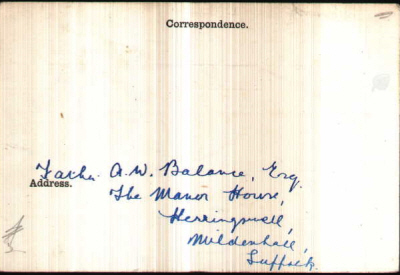 Correspondence.
Father A.W. Balance, Esq.
Address.
The Manor House,
Herringswell,
Mildenhall,
Suffolk